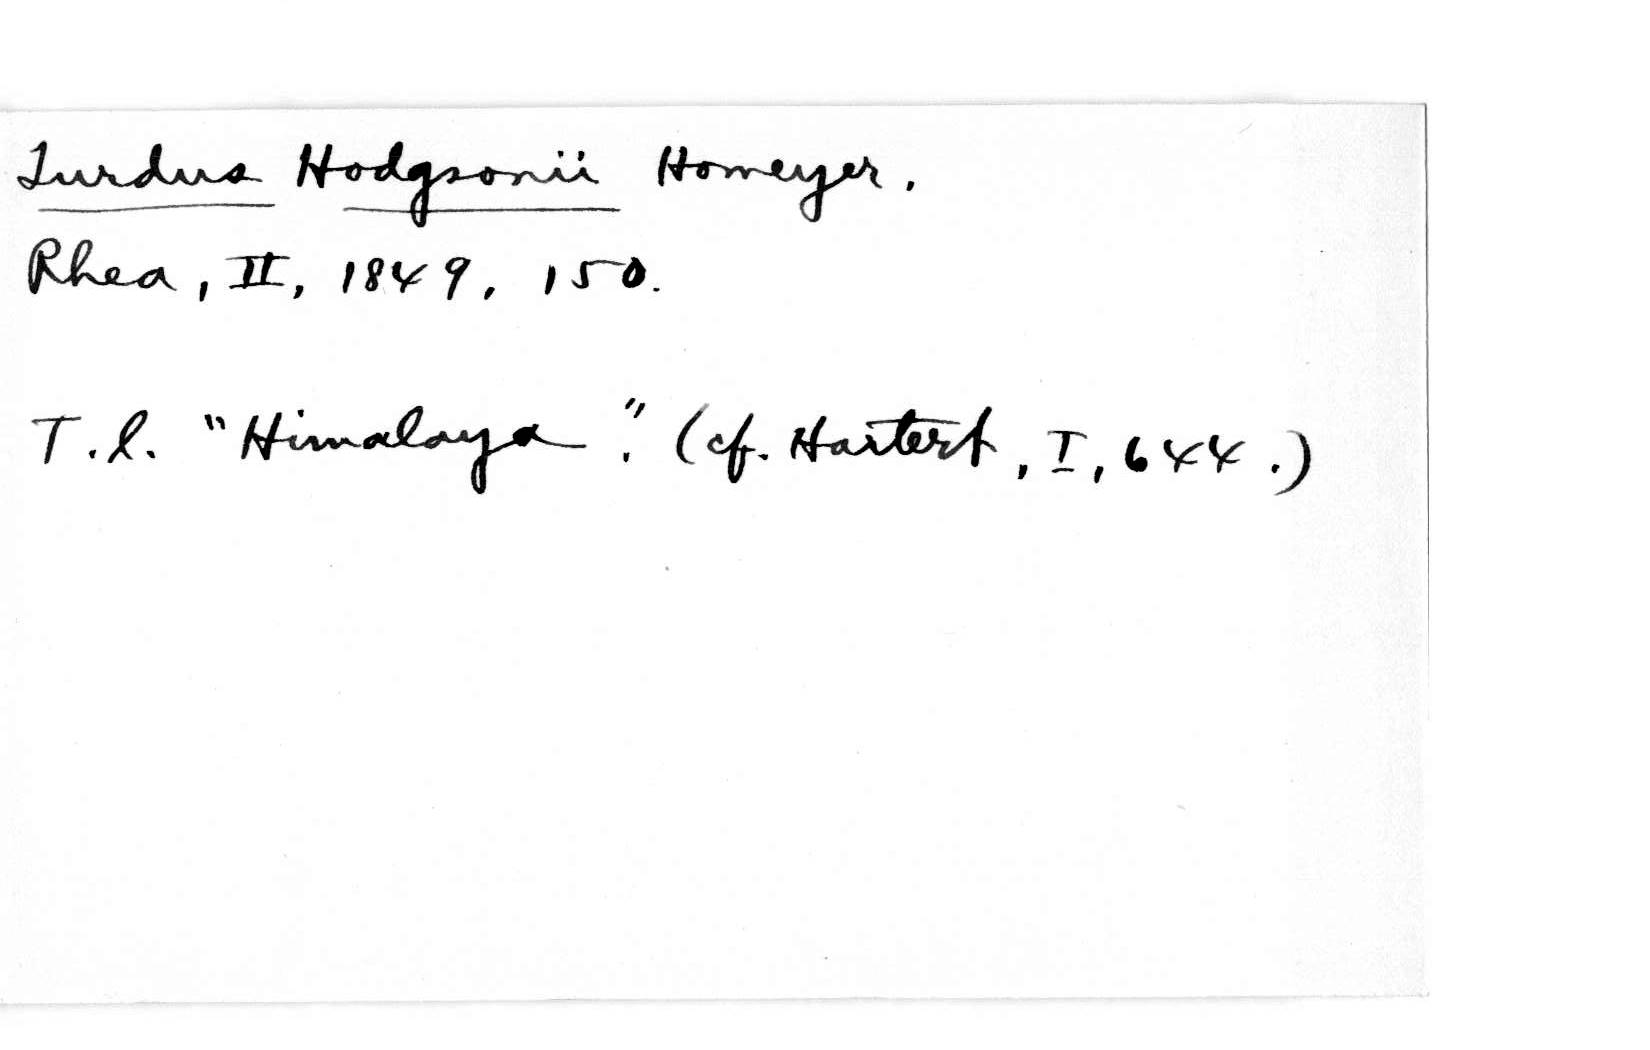 Turdus Hodgsonii Homeyer.
Rhea, II, 1849, 150.
T.l. "Himalaya". (cf. Hartert, I, 644.)